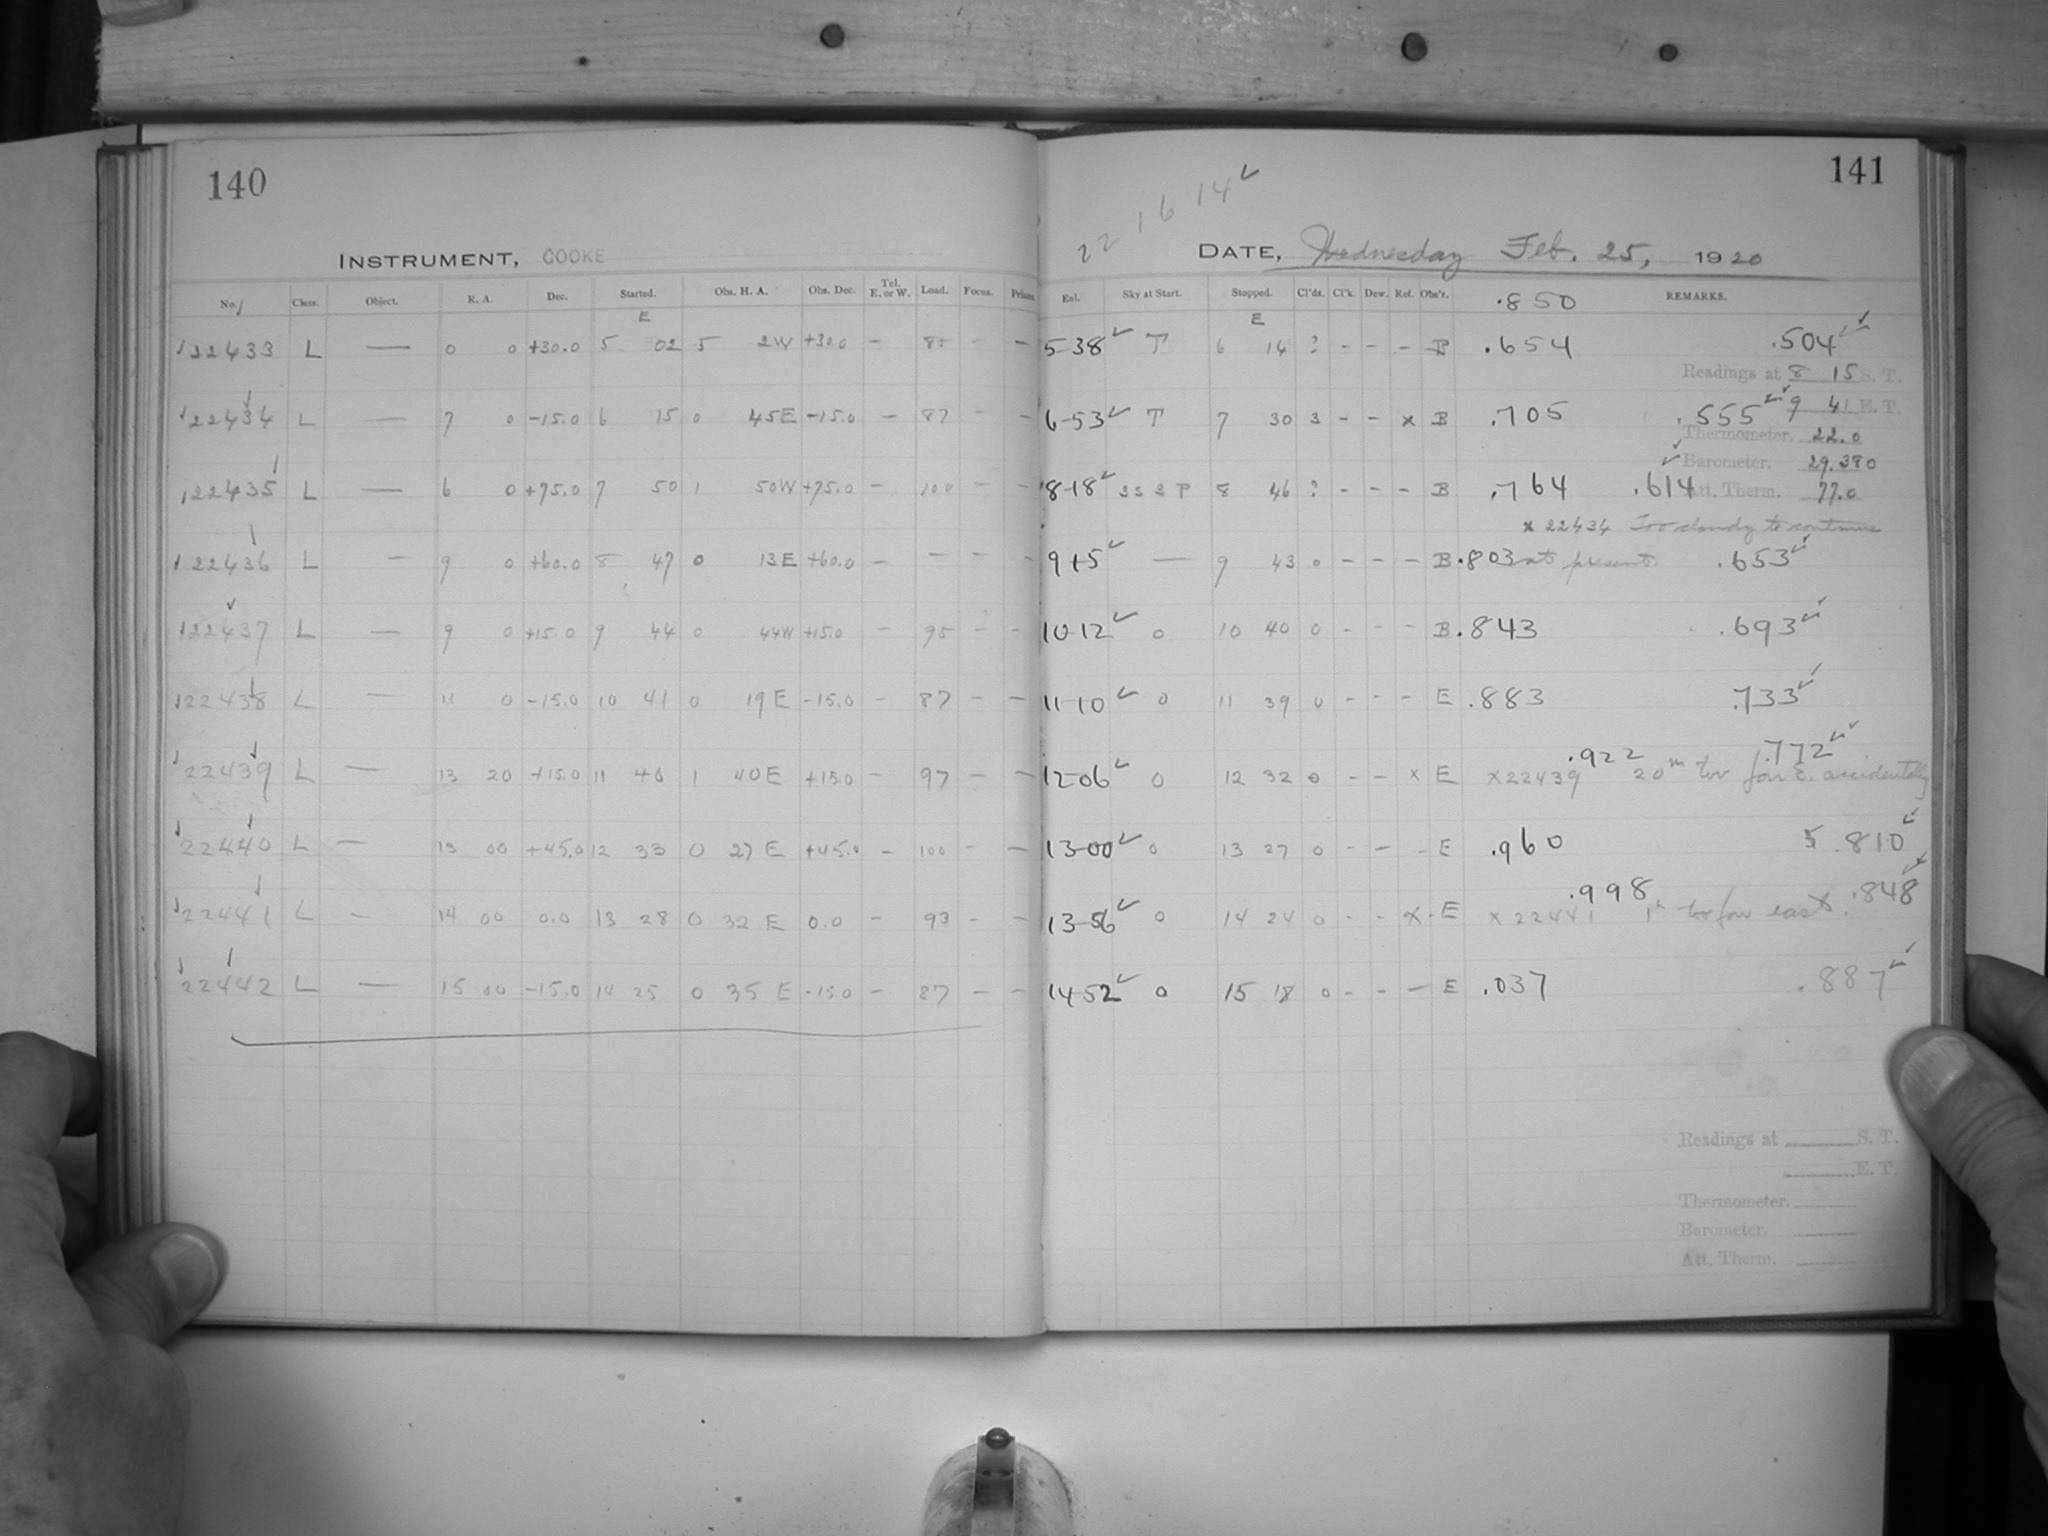 140
INSTRUMENT, COOKE
No. Class. Object. R. A. Dec. Started. Obs. H. A. Obs. Dec. Tel. E. or W. Load. Focus. Prism.
E
22433 L — 0 0 +30.0 5 02 5 2W +30.0 — — —
22434 L — 7 0 -15.0 6 15 0 45E -15.0 — 87 — —
22435 L — 6 0 +75.0 7 50 1 50W +75.0 — 100 — —
22436 L — 9 0 +60.0 8 47 0 13E +60.0 — — — —
22437 L — 9 0 +15.0 9 44 0 44W +15.0 — 95 — —
22438 L — 11 0 -15.0 10 41 0 19E -15.0 — 87 — —
22439 L — 13 20 +15.0 11 40 1 40E +15.0 — 97 — —
22440 L — 13 00 +45.0 12 33 0 27 E +45.0 — 100 — —
22441 L — 14 00 0.0 13 28 0 32 E 0.0 — 93 — —
22442 L — 15 00 -15.0 14 25 0 35 E -15.0 — 87 — —
141
22 16 14 ✓
DATE, Wednesday Feb. 25, 1920
Eal. Sky at Start. Stopped. Cl'ds. Cl'k. Dew. Ref. Obs'r. .850 REMARKS.
E
5-38 ✓ T 6 14 ? - - - B .654 .504 ✓✓
Readings at 8 15 S. T.
6-53 ✓ T 7 30 3 - - x B .705 .555 ✓✓ 9 41 E. T.
Thermometer. 22.0
Barometer. 29.380
8-18 ✓ P 8 46 ? - - - B .764 .614 Att. Therm. 77.0
x 22434 Too cloudy to continue
9+5 ✓ — 9 43 0 - - - B .803 at present. .653 ✓✓
10-12 ✓ 0 10 40 0 - - - B .843 .693 ✓✓
11-10 ✓ 0 11 39 0 - - - E .883 .733 ✓✓
.922 .772 ✓✓
12-06 ✓ 0 12 32 0 - - x E x 22439 20m too far E. accidentally
13-00 ✓ 0 13 27 0 - - - E .960 .810 ✓
.998 .848 ✓✓
13-56 ✓ 0 14 24 0 - - x E x 22441 1h too far east.
14-52 ✓ 0 15 18 0 - - - E .037 .887 ✓✓
Readings at S. T.
E. T.
Thermometer.
Barometer.
Att. Therm.